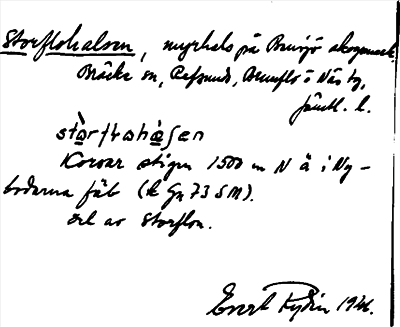 Storflohalsen, myrhals på Brunsjö skogsmark,
Bräcke sn, Refsunds, Brunflo o Näs tg,
Jämtl. l.
stòrflohɑ̀sen
Korsar stigen 1500 m N ä i Ny-
bodarna fäb (k Gn 73 SM).
del av Storflon.
Evert Rydin 1946.